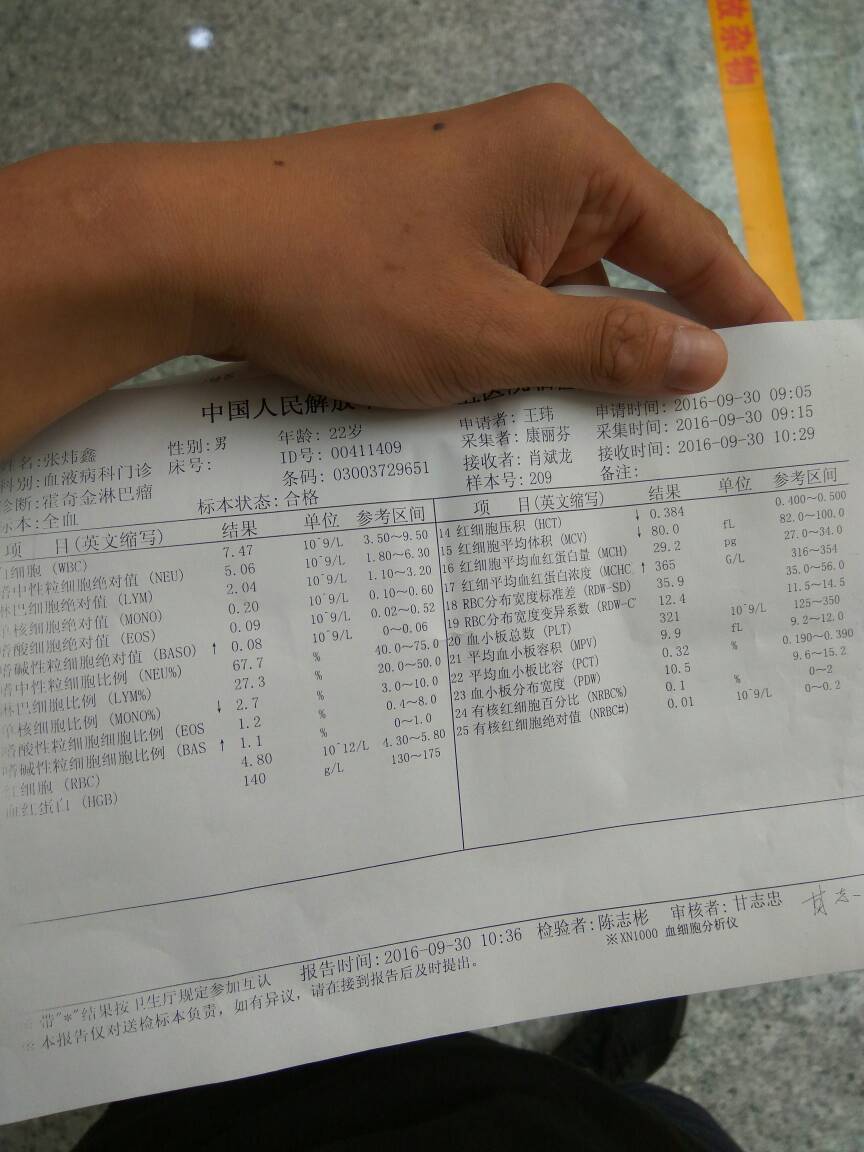 放杂物
中国人民解放
姓名:张炜鑫 性别:男 年龄:22岁 申请者:王玮 申请时间:2016-09-30 09:05
科别:血液病科门诊 床号: ID号:00411409 采集者:康丽芬 采集时间:2016-09-30 09:15
诊断:霍奇金淋巴瘤 条码:03003729651 接收者:肖斌龙 接收时间:2016-09-30 10:29
标本:全血 标本状态:合格 样本号:209 备注:
项 目(英文缩写) 结果 单位 参考区间
白细胞 (WBC) 7.47 10^9/L 3.50~9.50
嗜中性粒细胞绝对值 (NEU) 5.06 10^9/L 1.80~6.30
淋巴细胞绝对值 (LYM) 2.04 10^9/L 1.10~3.20
单核细胞绝对值 (MONO) 0.20 10^9/L 0.10~0.60
嗜酸细胞绝对值 (EOS) 0.09 10^9/L 0.02~0.52
嗜碱性粒细胞绝对值 (BASO) ↑ 0.08 10^9/L 0~0.06
嗜中性粒细胞比例 (NEU%) 67.7 % 40.0~75.0
淋巴细胞比例 (LYM%) 27.3 % 20.0~50.0
单核细胞比例 (MONO%) ↓ 2.7 % 3.0~10.0
嗜酸性粒细胞细胞比例 (EOS 1.2 % 0.4~8.0
嗜碱性粒细胞细胞比例 (BAS ↑ 1.1 % 0~1.0
红细胞 (RBC) 4.80 10^12/L 4.30~5.80
血红蛋白 (HGB) 140 g/L 130~175
项 目(英文缩写) 结果 单位 参考区间
14 红细胞压积 (HCT) ↓ 0.384 0.400~0.500
15 红细胞平均体积 (MCV) ↓ 80.0 fL 82.0~100.0
16 红细胞平均血红蛋白量 (MCH) 29.2 pg 27.0~34.0
17 红细平均血红蛋白浓度 (MCHC ↑ 365 G/L 316~354
18 RBC分布宽度标准差 (RDW-SD) 35.9 35.0~56.0
19 RBC分布宽度变异系数 (RDW-C 12.4 11.5~14.5
20 血小板总数 (PLT) 321 10^9/L 125~350
21 平均血小板容积 (MPV) 9.9 fL 9.2~12.0
22 平均血小板比容 (PCT) 0.32 % 0.190~0.390
23 血小板分布宽度 (PDW) 10.5 9.6~15.2
24 有核红细胞百分比 (NRBC%) 0.1 % 0~2
25 有核红细胞绝对值 (NRBC#) 0.01 10^9/L 0~0.2
报告时间:2016-09-30 10:36 检验者:陈志彬 审核者:甘志忠
※XN1000 血细胞分析仪
带"*"结果按卫生厅规定参加互认
※ 本报告仅对送检标本负责，如有异议，请在接到报告后及时提出。